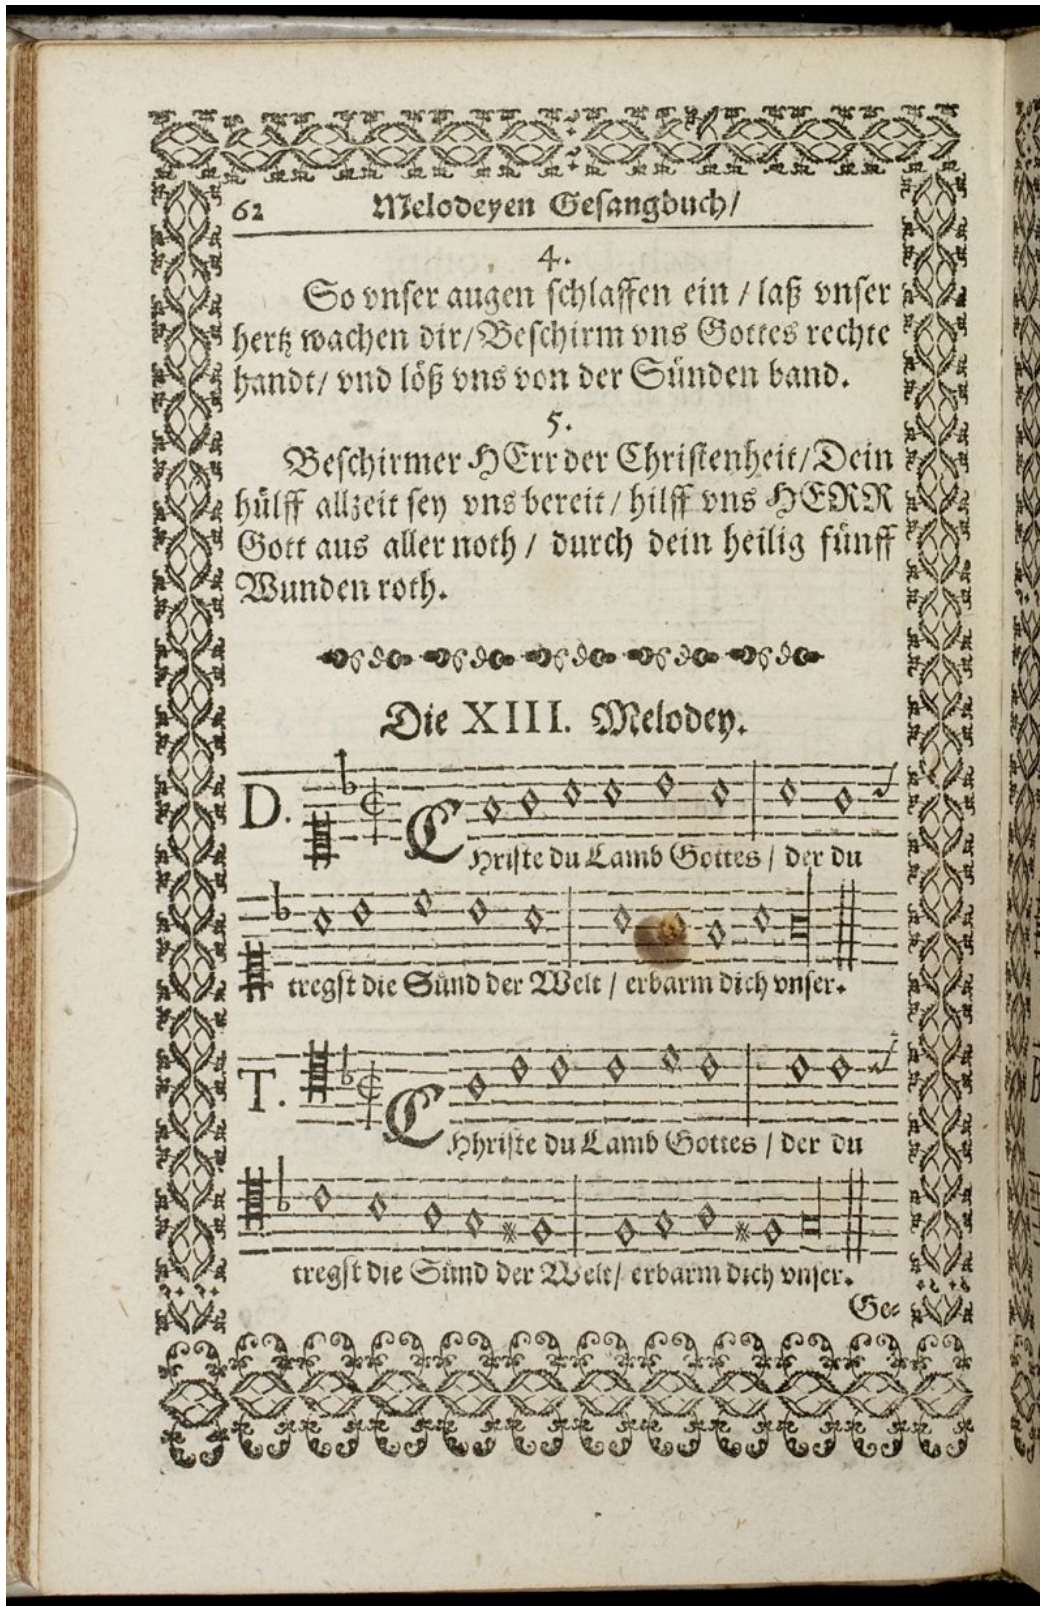 62 Melodeyen Gesangbuch/
4.
So vnser augen schlaffen ein / laß vnser
hertz wachen dir/Beschirm vns Gottes rechte
handt/ vnd löß vns von der Sünden band.
5.
Beschirmer HErr der Christenheit/Dein
hülff allzeit sey vns bereit / hilff vns HERR
Gott aus aller noth / durch dein heilig fünff
Wunden roth.
Die XIII. Melodey.
D.
CHriste du Lamb Gottes / der du
tregst die Sünd der Welt / erbarm dich vnser.
T.
CHhriste du Lamb Gottes / der du
tregst die Sünd der Welt/ erbarm dich vnser.
Ge-